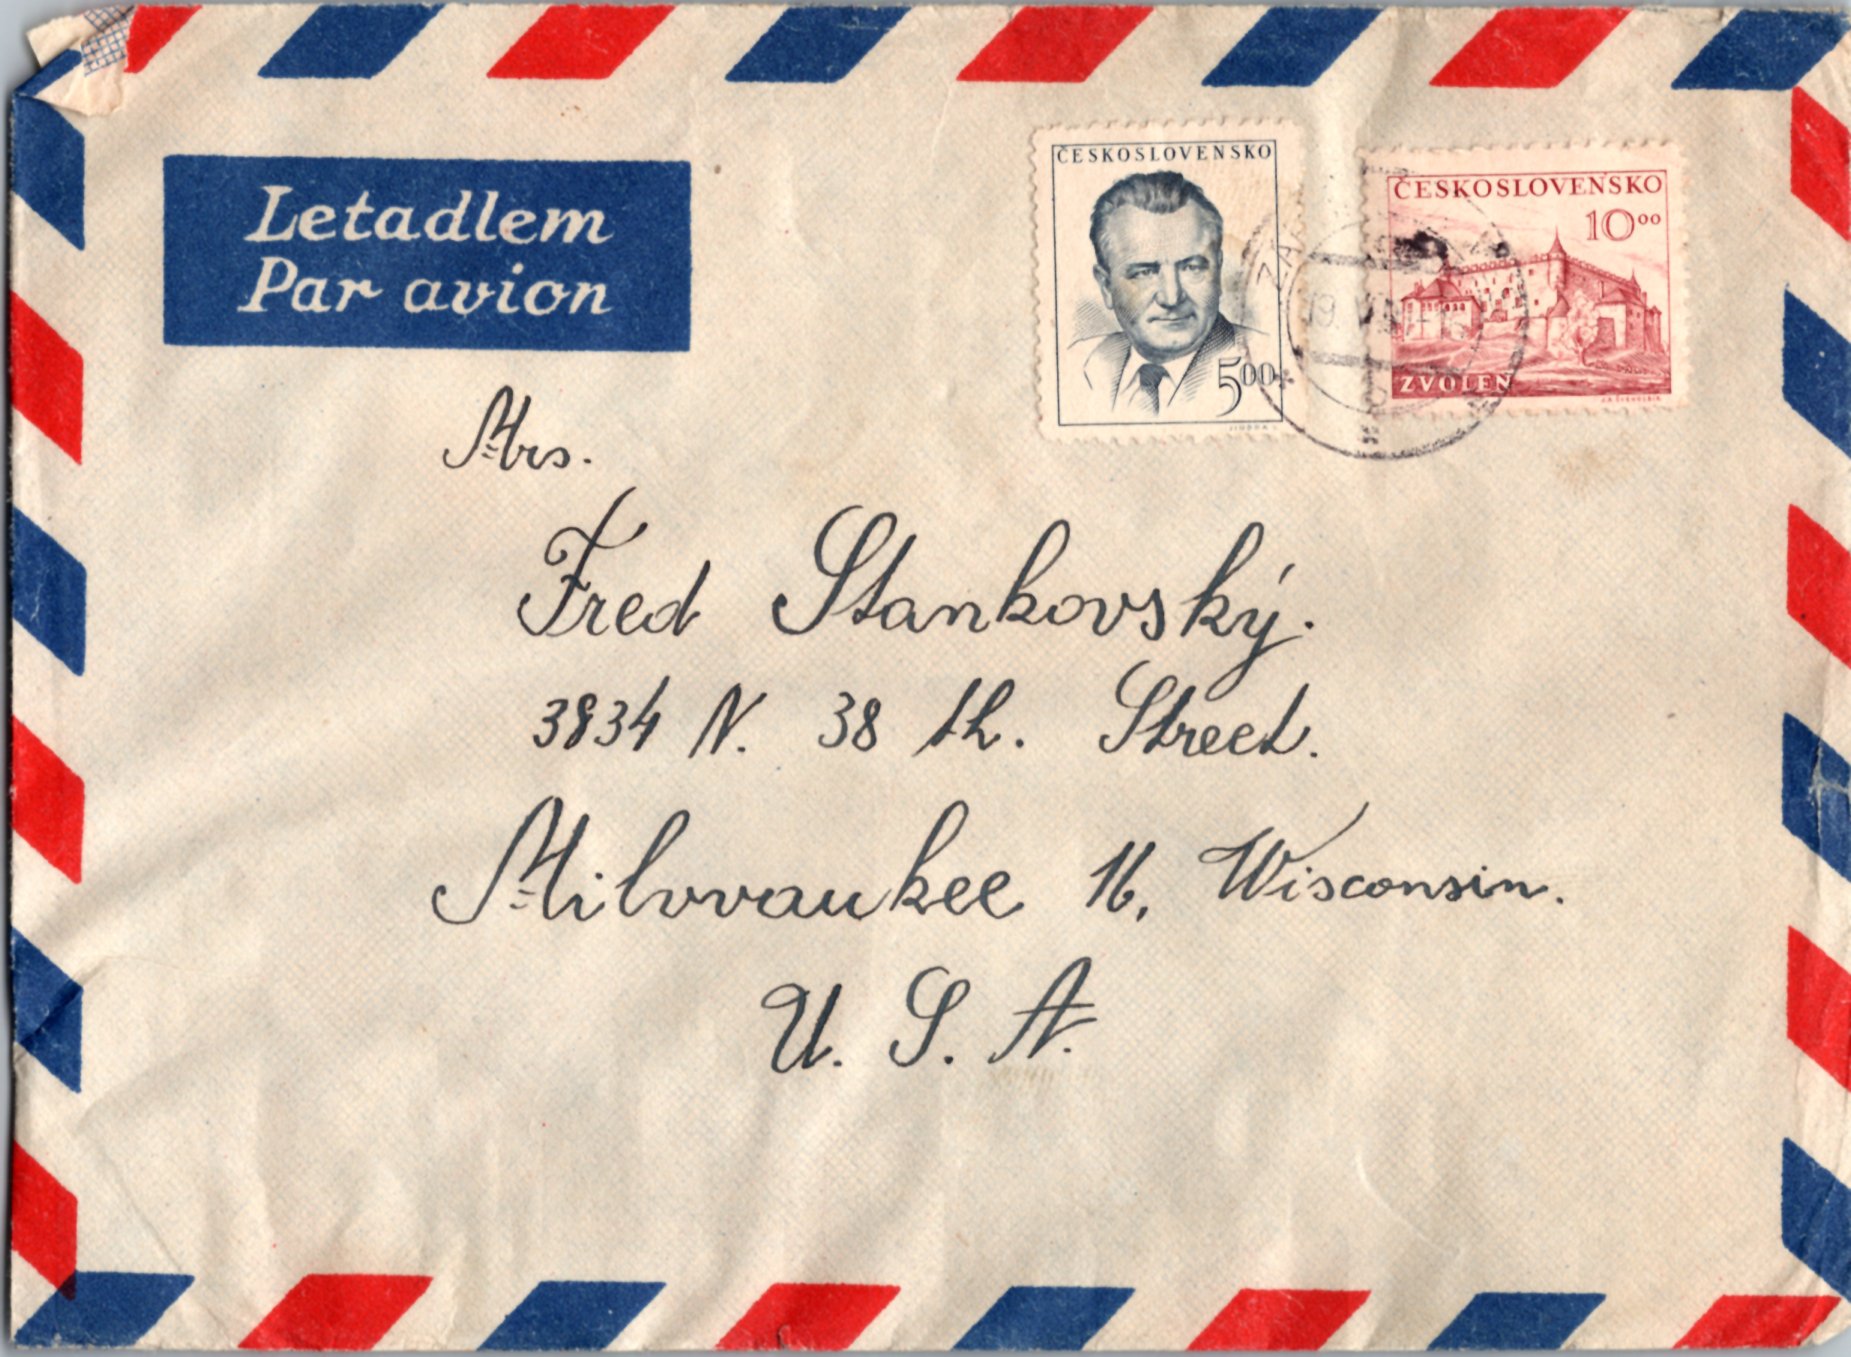 Letadlem
Par avion
ČESKOSLOVENSKO
500
ČESKOSLOVENSKO
1000
ZVOLEN
Mrs.
Fred Stankovský.
3834 N. 38 th. Street.
Milwaukee 16, Wisconsin.
U. S. A.